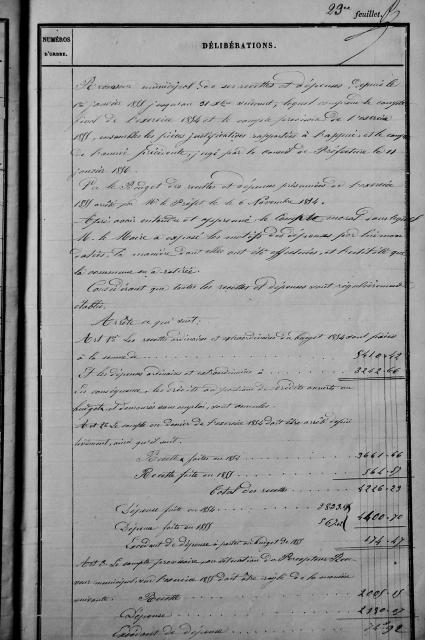 23me feuillet.
NUMÉROS D'ORDRE.
DÉLIBÉRATIONS.
municipal de ses recettes et dépenses depuis le
1er janvier 1855 jusqu'au 31 Xbre suivant, lequel comprend le compte
de l'exercice 1854 et le compte provisoire de l'exercice
1855, ensemble les pièces justificatives rapportées à l'appui, et le compte
de l'année précédente, jugé par le Conseil de Préfecture le 11
janvier 1856.
Vu le Budget des recettes et dépenses présumées de l'exercice
1855 arrêté par Mr le Préfet le 6 Novembre 1854.
Après avoir entendu et approuvé le Compte moral dans lequel
M. le Maire a exposé les motifs des dépenses par lui
la manière dont elles ont été effectuées, et l'utilité que
la commune en a retirée.
Considérant que toutes les recettes et dépenses sont régulièrement
établies.
Arrête ce qui suit:
Art 1er Les recettes ordinaires et extraordinaires du budget 1854 sont fixées
à la somme de
Et les dépenses ordinaires et extraordinaires à
En conséquence, les crédits ou portions de crédits ouverts au
budget et demeurés sans emploi, sont annulés.
Art 2. Le compte en deniers de l'exercice 1854 doit être arrêté
ainsi qu'il suit.
Recette faite en 1854 3661-66
Recette faite en 1855 564-57
Total des recettes 4226-23
Dépense faite en 1854
Dépense faite en 1855 4400-70
Excédant de dépense à porter au budget de 1855 174-47
Art 3. Le compte provisoire par situation du Percepteur Rece-
veur municipal, sur l'exercice 1855 doit être réglé de la manière
suivante. Recette
Dépense
Excédant de dépense